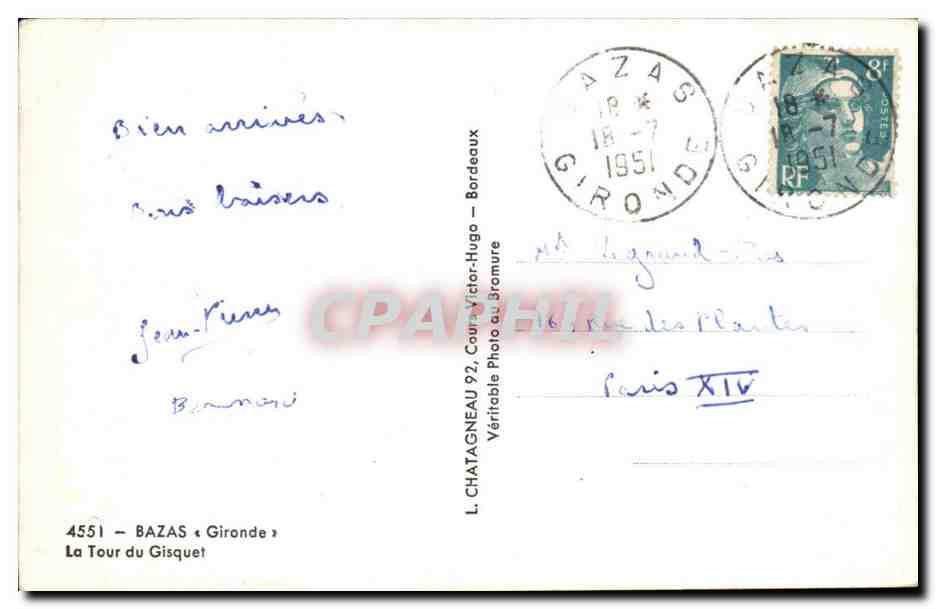 Bien arrivés.
Bons baisers
Jean-Pierre
Bernard
4551 — BAZAS « Gironde »
La Tour du Gisquet
L. CHATAGNEAU 92, Cours Victor-Hugo — Bordeaux
Véritable Photo au Bromure
BAZAS
18 *
18 -7
1951
GIRONDE
BAZAS
18 *
18 -7
1951
GIRONDE
8F
POSTES
RF
Legrand
Rue des Plantes
Paris XIV
CPAPHIL